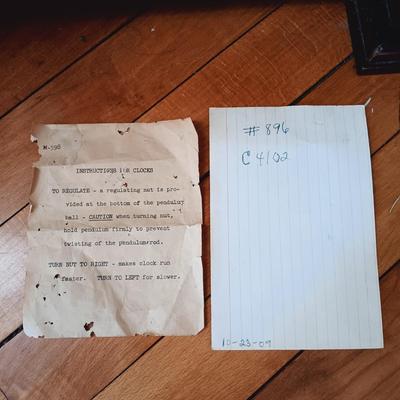 M-598
INSTRUCTIONS FOR CLOCKS
TO REGULATE - a regulating nut is pro-
vided at the bottom of the pendulum
ball - CAUTION when turning nut,
hold pendulum firmly to prevent
twisting of the pendulumrod.
TURN NUT TO RIGHT - makes clock run
faster. TURN TO LEFT for slower.
# 896
C 4102
10-23-09